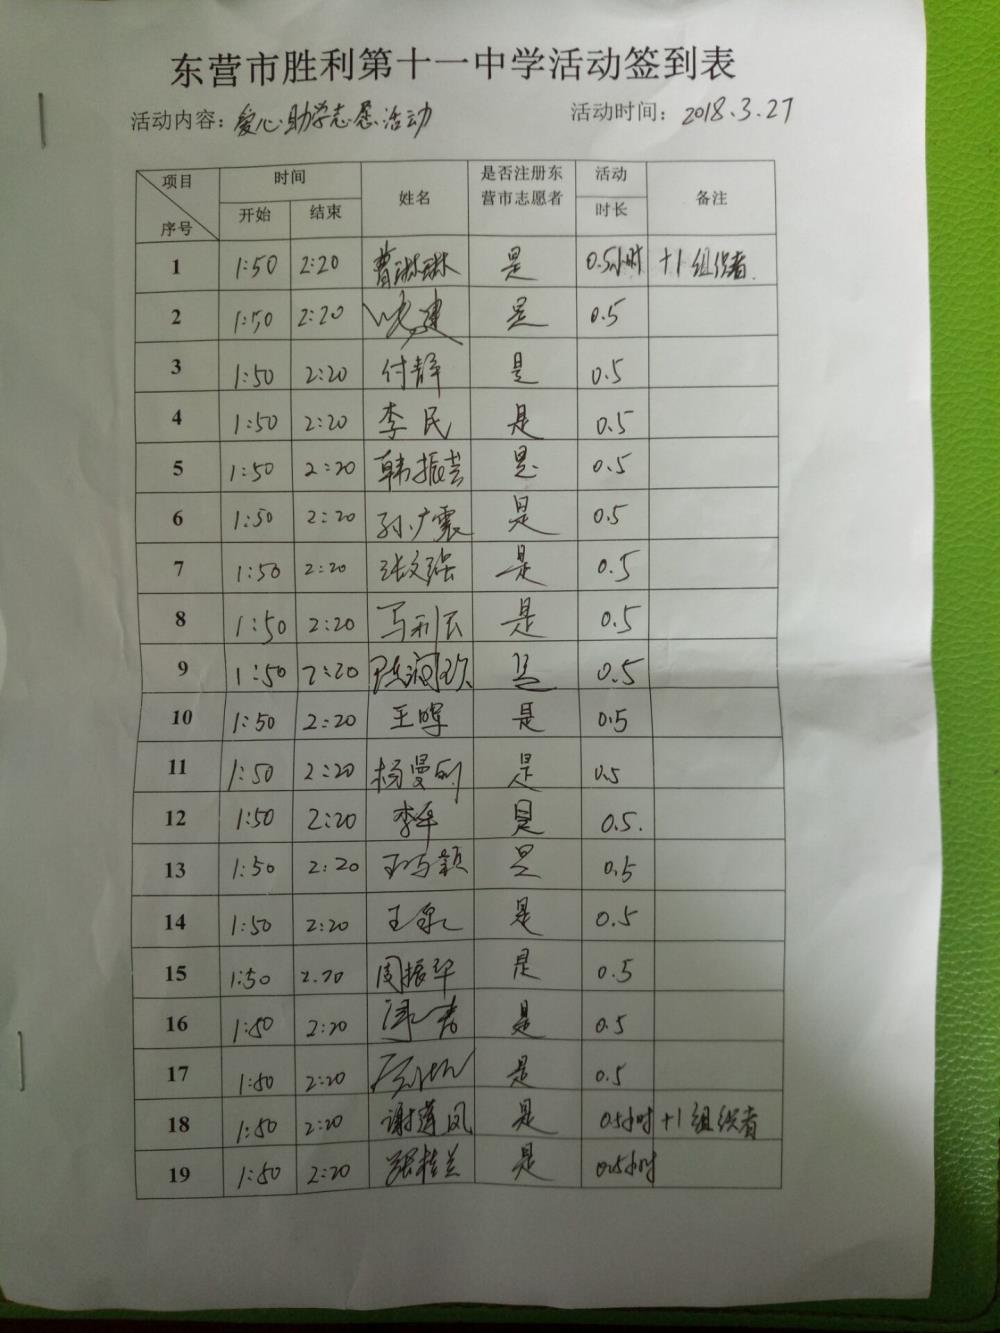 东营市胜利第十一中学活动签到表
活动内容：爱心助学志愿活动 活动时间：2018.3.27
项目 时间 姓名 是否注册东营市志愿者 活动时长 备注
序号 开始 结束
1 1:50 2:20 曹琳琳 是 0.5小时 +1组织者
2 1:50 2:20 是 0.5
3 1:50 2:20 付静 是 0.5
4 1:50 2:20 李民 是 0.5
5 1:50 2:20 韩振芸 是 0.5
6 1:50 2:20 孙广震 是 0.5
7 1:50 2:20 张文强 是 0.5
8 1:50 2:20 马利云 是 0.5
9 1:50 2:20 是 0.5
10 1:50 2:20 王晖 是 0.5
11 1:50 2:20 杨曼 是 0.5
12 1:50 2:20 李军 是 0.5.
13 1:50 2:20 是 0.5
14 1:50 2:20 王泉 是 0.5
15 1:50 2.20 周振华 是 0.5
16 1:50 2:20 是 0.5
17 1:50 2:20 是 0.5
18 1:50 2:20 谢莲凤 是 0.5小时 +1组织者
19 1:50 2:20 张桂兰 是 0.5小时